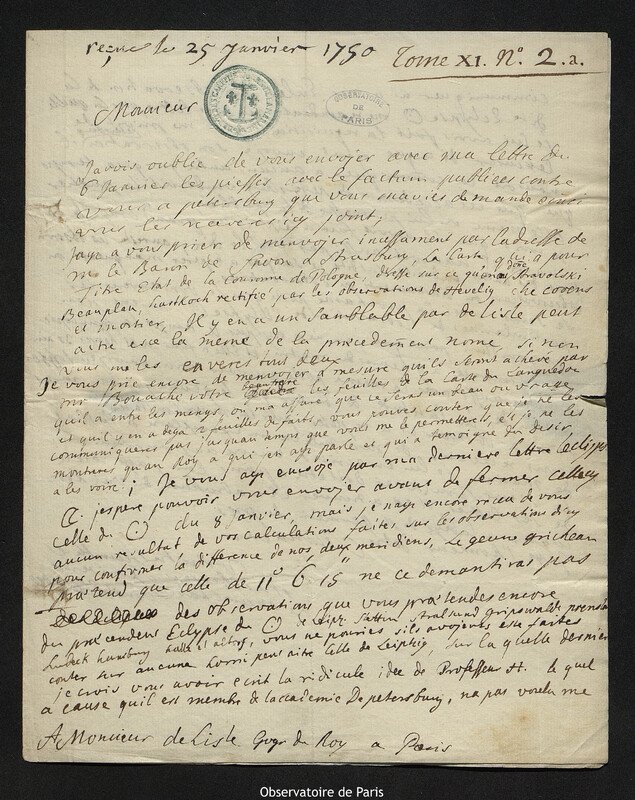 reçue le 25 Janvier 1750
Tome XI. N.° 2.a.
OBSERVATOIRE DE PARIS
Monsieur
J'avois oublié de vous envojer avec ma lettre du
6 Janvier les piesses avec le factum publiees contre
vous a petersburg que vous m'aviés demandé
vous les receverés cy joint;
J'aye a vous prier de m'envojer incessament par l'adresse de
m. le Baron de a Strasburg, la Carte qui a pour
Titre Etat de la Couronne de Pologne, dressé sur ce qu'en a donné Starovolski
Beauplan, Hartkoch rectifié par les observations de Hevelig che Covens
et Mortier, Il y en a un samblable par de lisle peut
aitre esce la meme de la procedement nomé, si non
vous me les enverés tous deux
Je vous prie encore de m'envojer a mesure qu'ils seront achevé par
mr Bouache votre les feuilles de la Carte du Languedoc
qu'il a entre les mengs, on m'a assuré que ce seras un beau ouvrage
et qu'il y en a deja 2 feuilles de faits, vous pouvés conter que je ne les
communiqueres pas jusqu'au temps que vous me le permetteres, et je ne les
montreres qu'au Roy a qui j'en aye parlé et qui a temoigné un desir
a les voire; Je vous aye envojé par ma derniere lettre l'eclipse
☾. j'espere pouvoir vous envojer avant de fermer cellecy
celle du ☉ du 8 Janvier, mais je n'aye encore receu de vous
aucun resultat de vos calculations faites sur les observations d'icy
pour confirmer la difference de nos deux meridiens. Le
pra'tend que celle de 11' 6" 15''' ne ce demantiras pas
des observations que vous pra'tendes encore
du pra'cendens Eclypse de ☉ de
Lubeck hamburg halla et altrof, vous ne pouriés s'ils avojents esté faites
conter sur aucune hormi peut aitre Celle de Leipzig, sur la quelle dernier
je crois vous avoir ecrit la ridicule idée de Professeur H. le quel
a cause qu'il est membre de l'accademie De petersburg, n'a pas voulu me
A Monsieur de Lisle Geogr du Roy a Paris
Observatoire de Paris